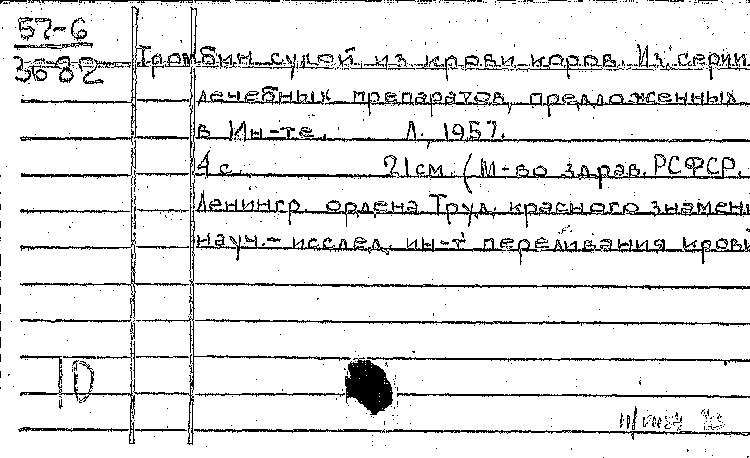 57-6
3682
Тромбин сухой из крови коров. Из серии
лечебных препаратов, предложенных
в Ин-те. Л., 1957.
4 с. 21 см. (М-во здрав. РСФСР.
Ленингр. ордена Труд. красного знамени
науч.- исслед. ин-т переливания крови
10